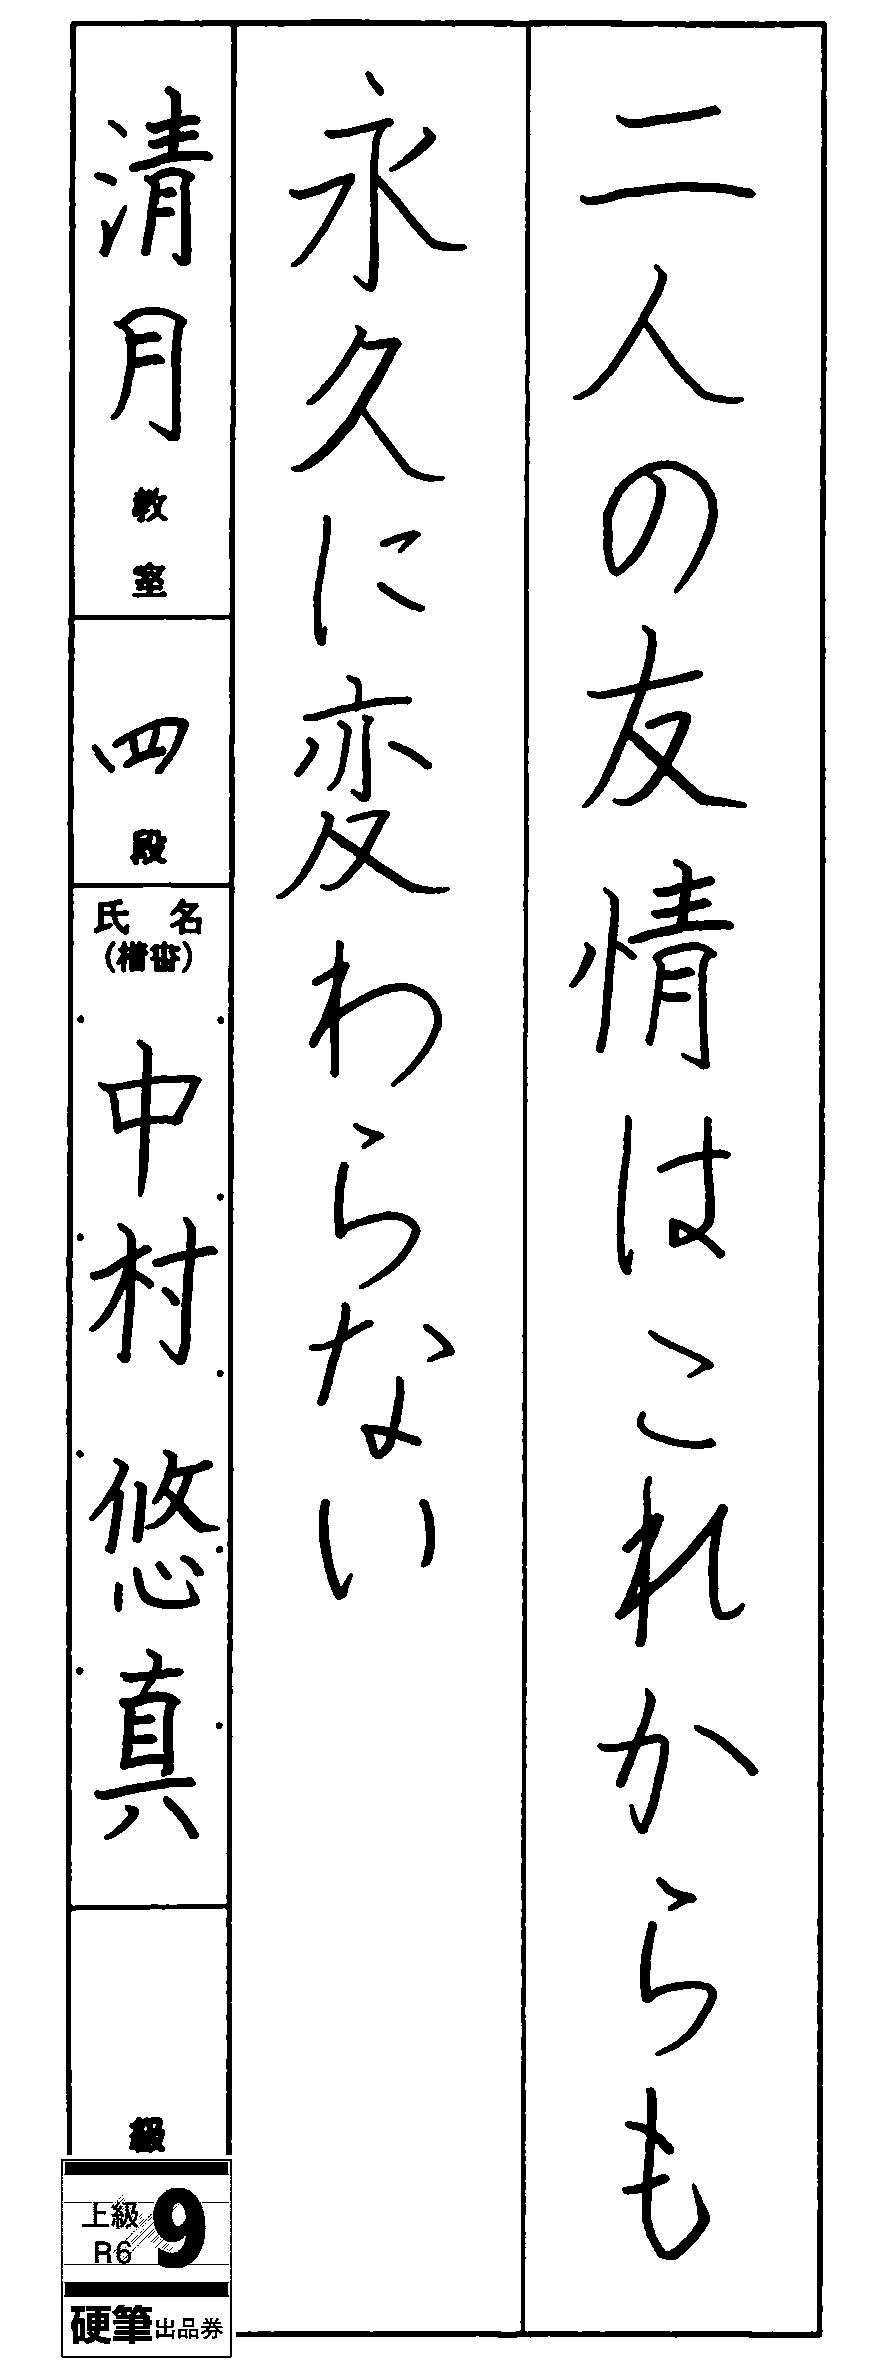 二人の友情はこれからも
永久に変わらない
清月教室
四段
氏名
(楷書)
中村悠真
級
上級
R6
9
硬筆出品券